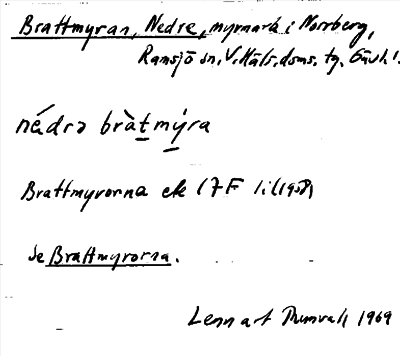 Brattmyran, Nedre, myrmark i Norrberg,
Ramsjö sn, V. Häls. doms. tg. Gävl. l.
nédrə bràtmýra
Brattmyrorna ek 17F 1i (1958)
se Brattmyrorna.
Lennart Thunvall 1969